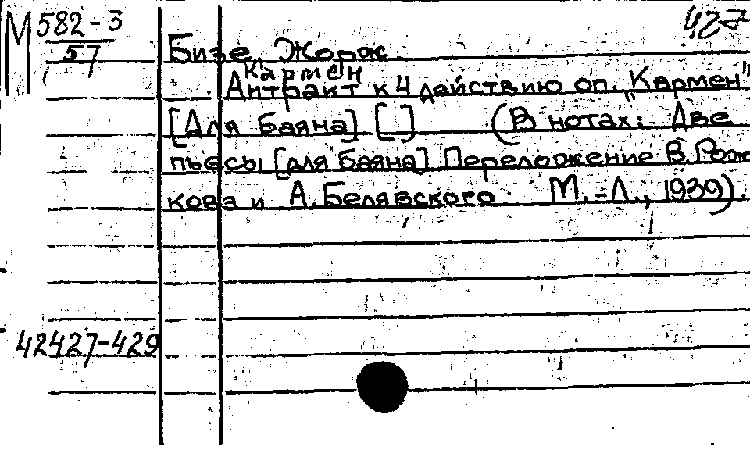 М 582-3
57
427
Бизе, Жорж.
Кармен
Антракт к 4 действию оп. "Кармен"
[Для баяна] [ ] (В нотах: Две
пьесы [для баяна] Переложение В. Рож
кова и А. Белявского М.-Л., 1939).
42427-429